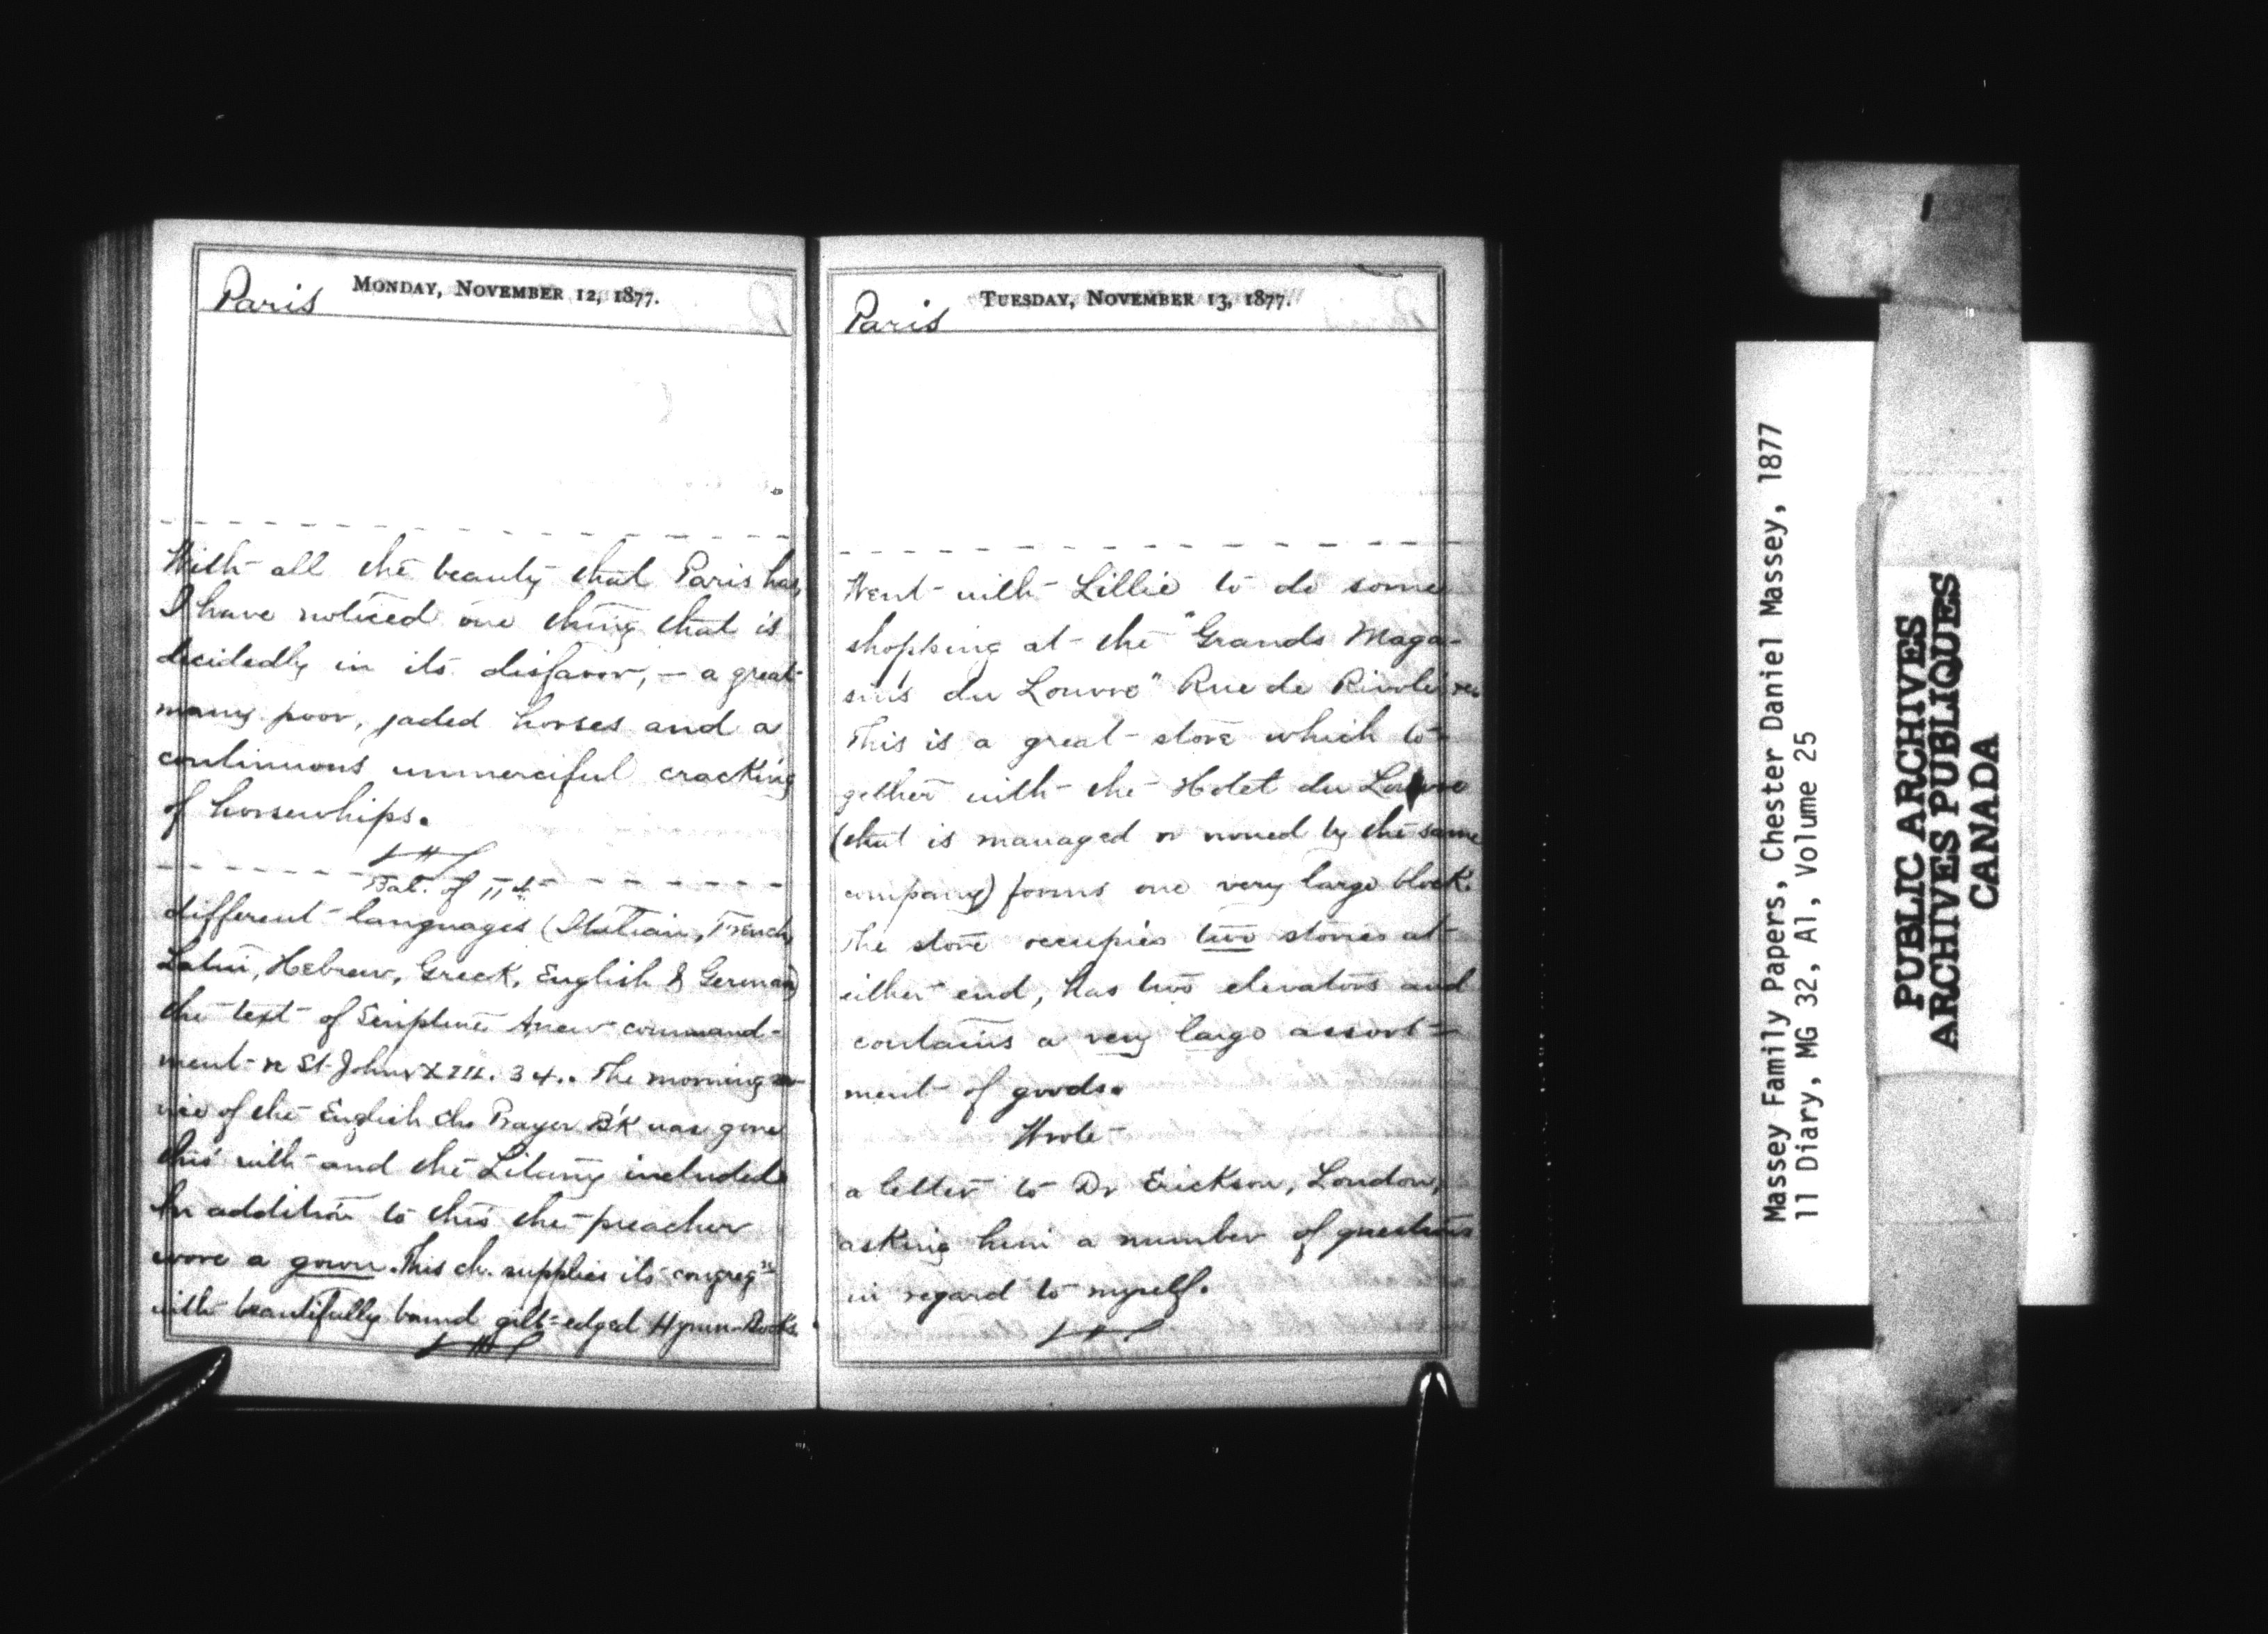 MONDAY, NOVEMBER 12, 1877.
Paris
With all the beauty that Paris has,
I have noticed one thing that is
decidedly in its disfavor, — a great
many poor, jaded horses and a
continuous unmerciful cracking
of horsewhips.
Bal. of 11th
different languages (Italian, French,
Latin, Hebrew, Greek, English & German)
the text of Scripture A new command-
ment re St. John XIII. 34. The morning ser-
vice of the English Ch. Prayer B'k was gone
thro' with and the Litany included
In addition to this the preacher
wore a gown. This ch. supplies its congregn
with beautifully bound gilt-edged Hymn-Books.
TUESDAY, NOVEMBER 13, 1877.
Paris
Went with Lillie to do some
shopping at the "Grands Maga-
sins du Louvre" Rue de Rivoli
This is a great store which to-
gether with the Hotel du Louvre
(that is managed or owned by the same
company) forms one very large block.
The store occupies two stories at
either end, has two elevators and
contains a very large assort=
ment of goods.
Wrote
a letter to Dr Erickson, London,
asking him a number of questions
in regard to myself.
Massey Family Papers, Chester Daniel Massey, 1877
11 Diary, MG 32, A1, Volume 25
PUBLIC ARCHIVES
ARCHIVES PUBLIQUES
CANADA